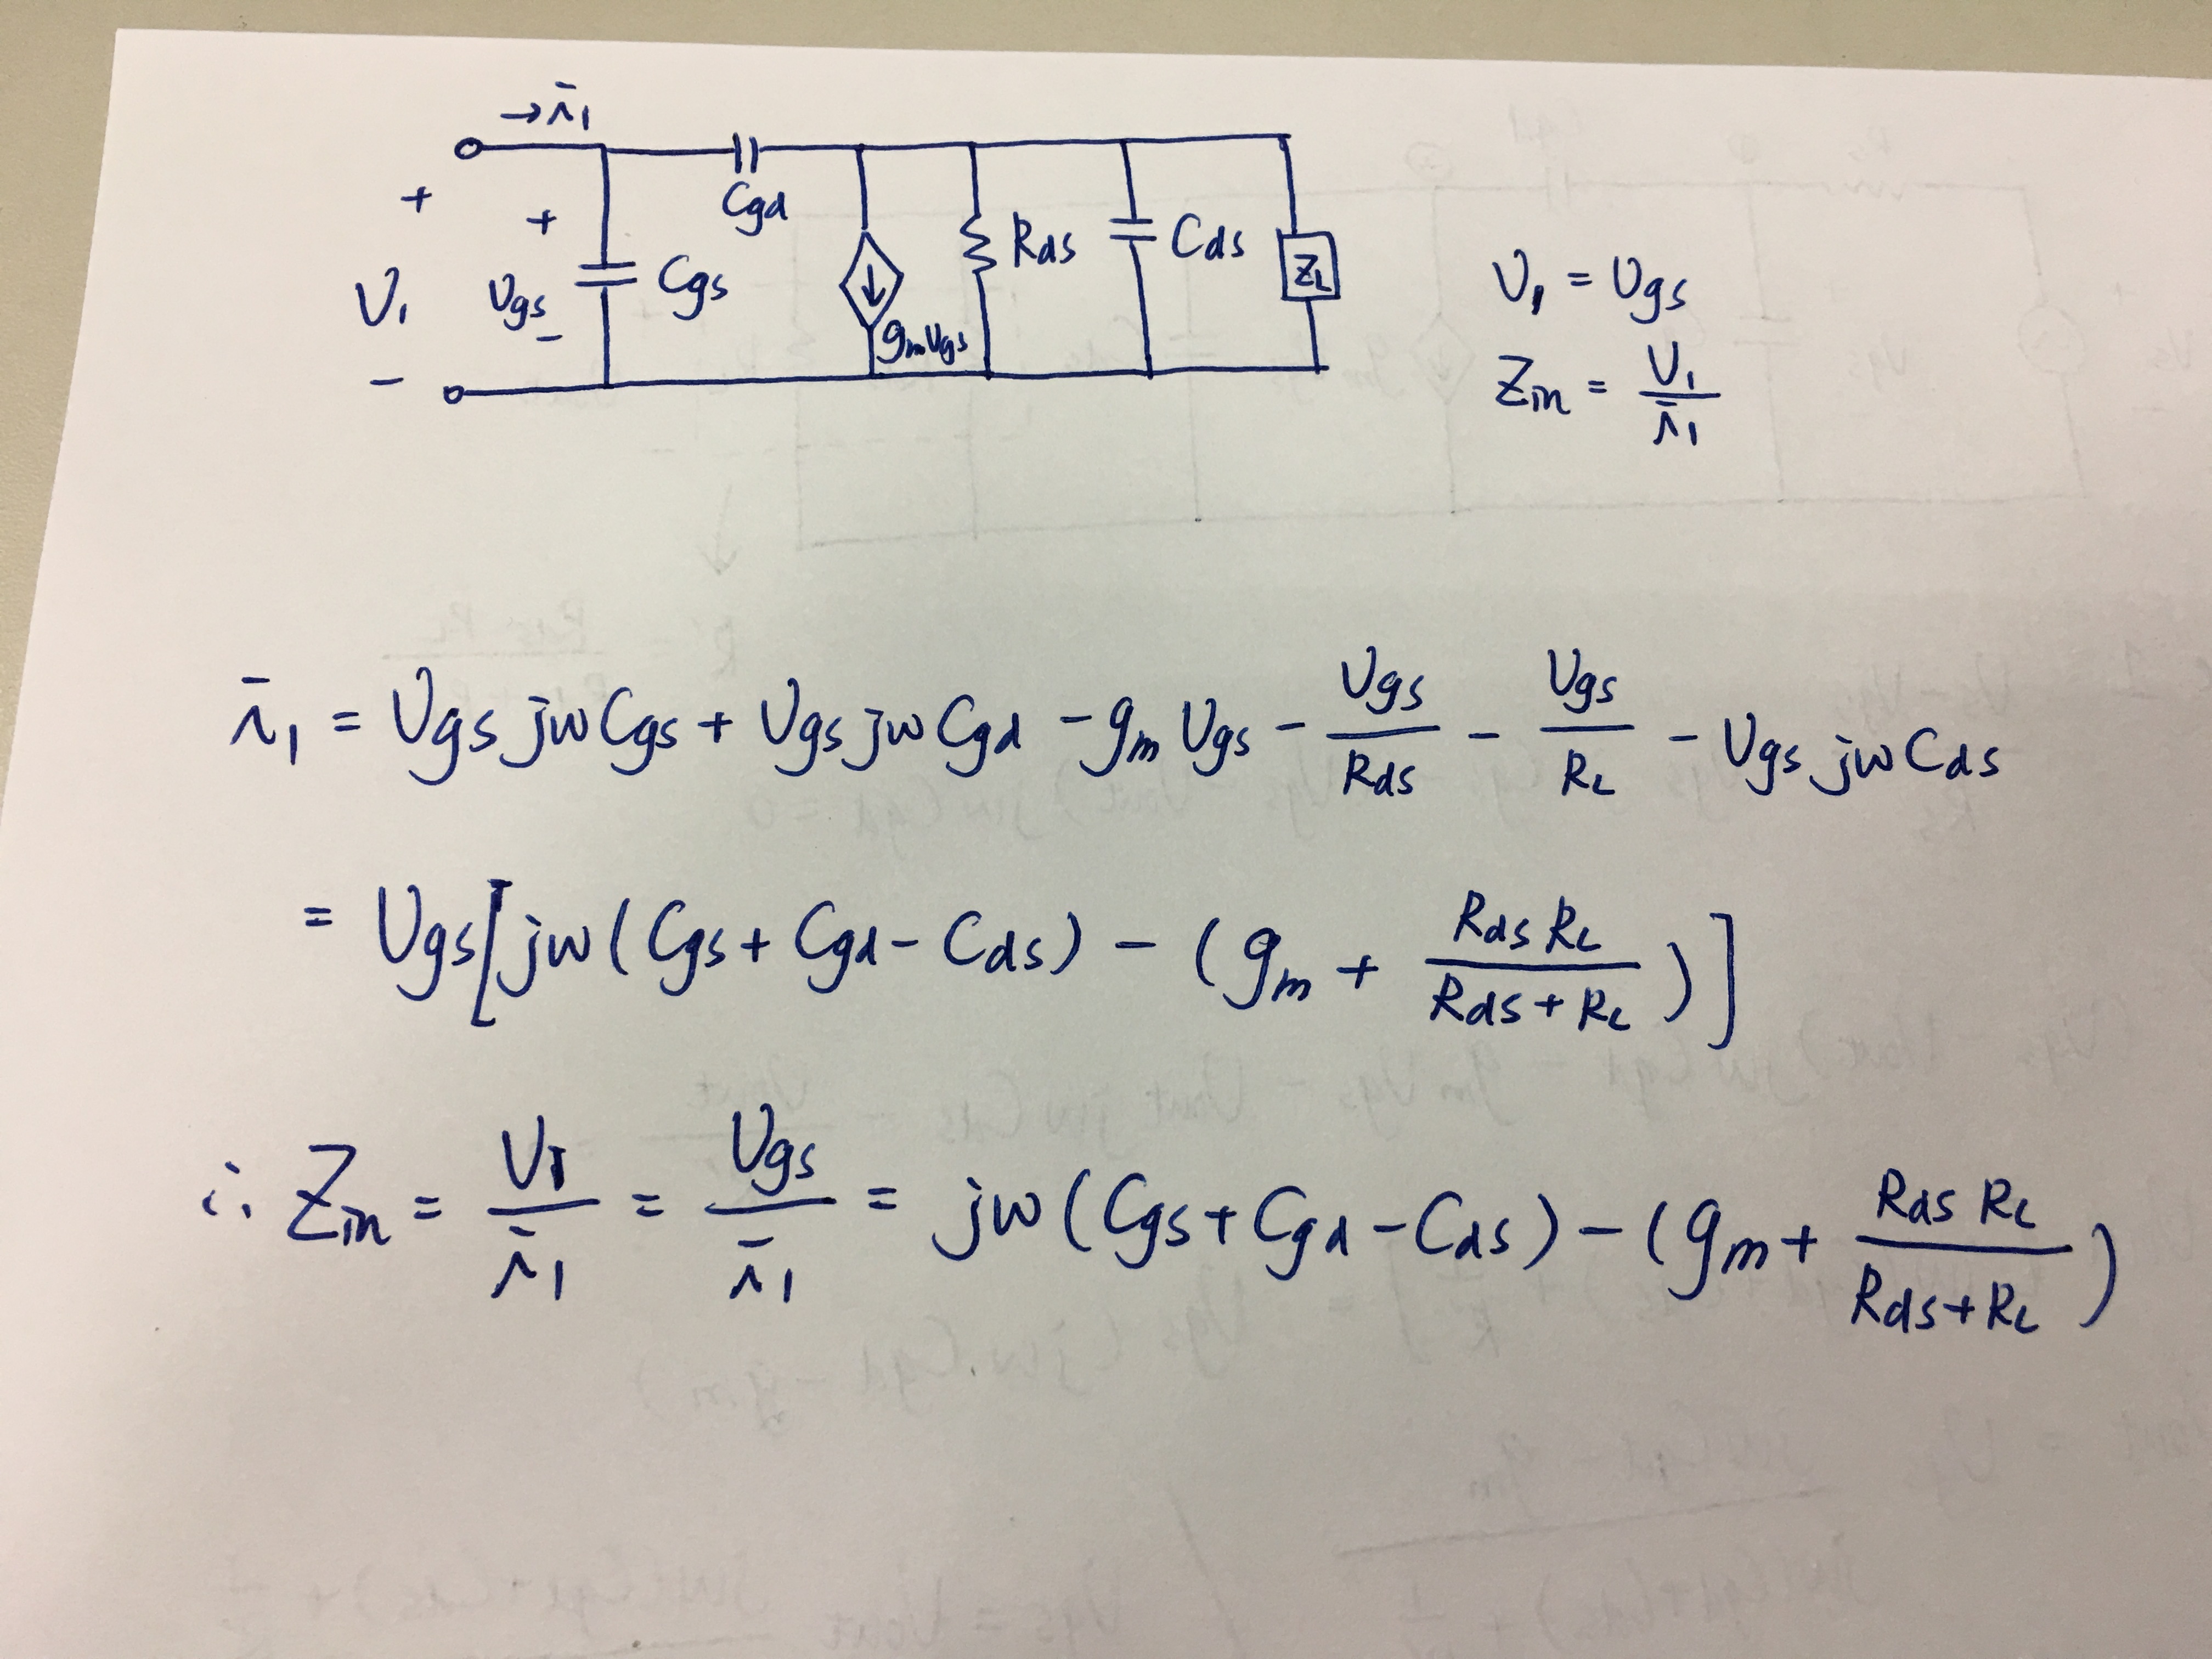 → i₁
+
+
Cgd
V₁
Vgs
Cgs
gmVgs
Rds
Cds
ZL
−
−
V₁ = Vgs
Zin = V₁ / i₁
i₁ = Vgs jw Cgs + Vgs jw Cgd − gm Vgs − Vgs / Rds − Vgs / RL − Vgs jw Cds
= Vgs [ jw ( Cgs + Cgd − Cds ) − ( gm + Rds RL / Rds + RL ) ]
∴ Zin = V₁ / i₁ = Vgs / i₁ = jw ( Cgs + Cgd − Cds ) − ( gm + Rds RL / Rds + RL )